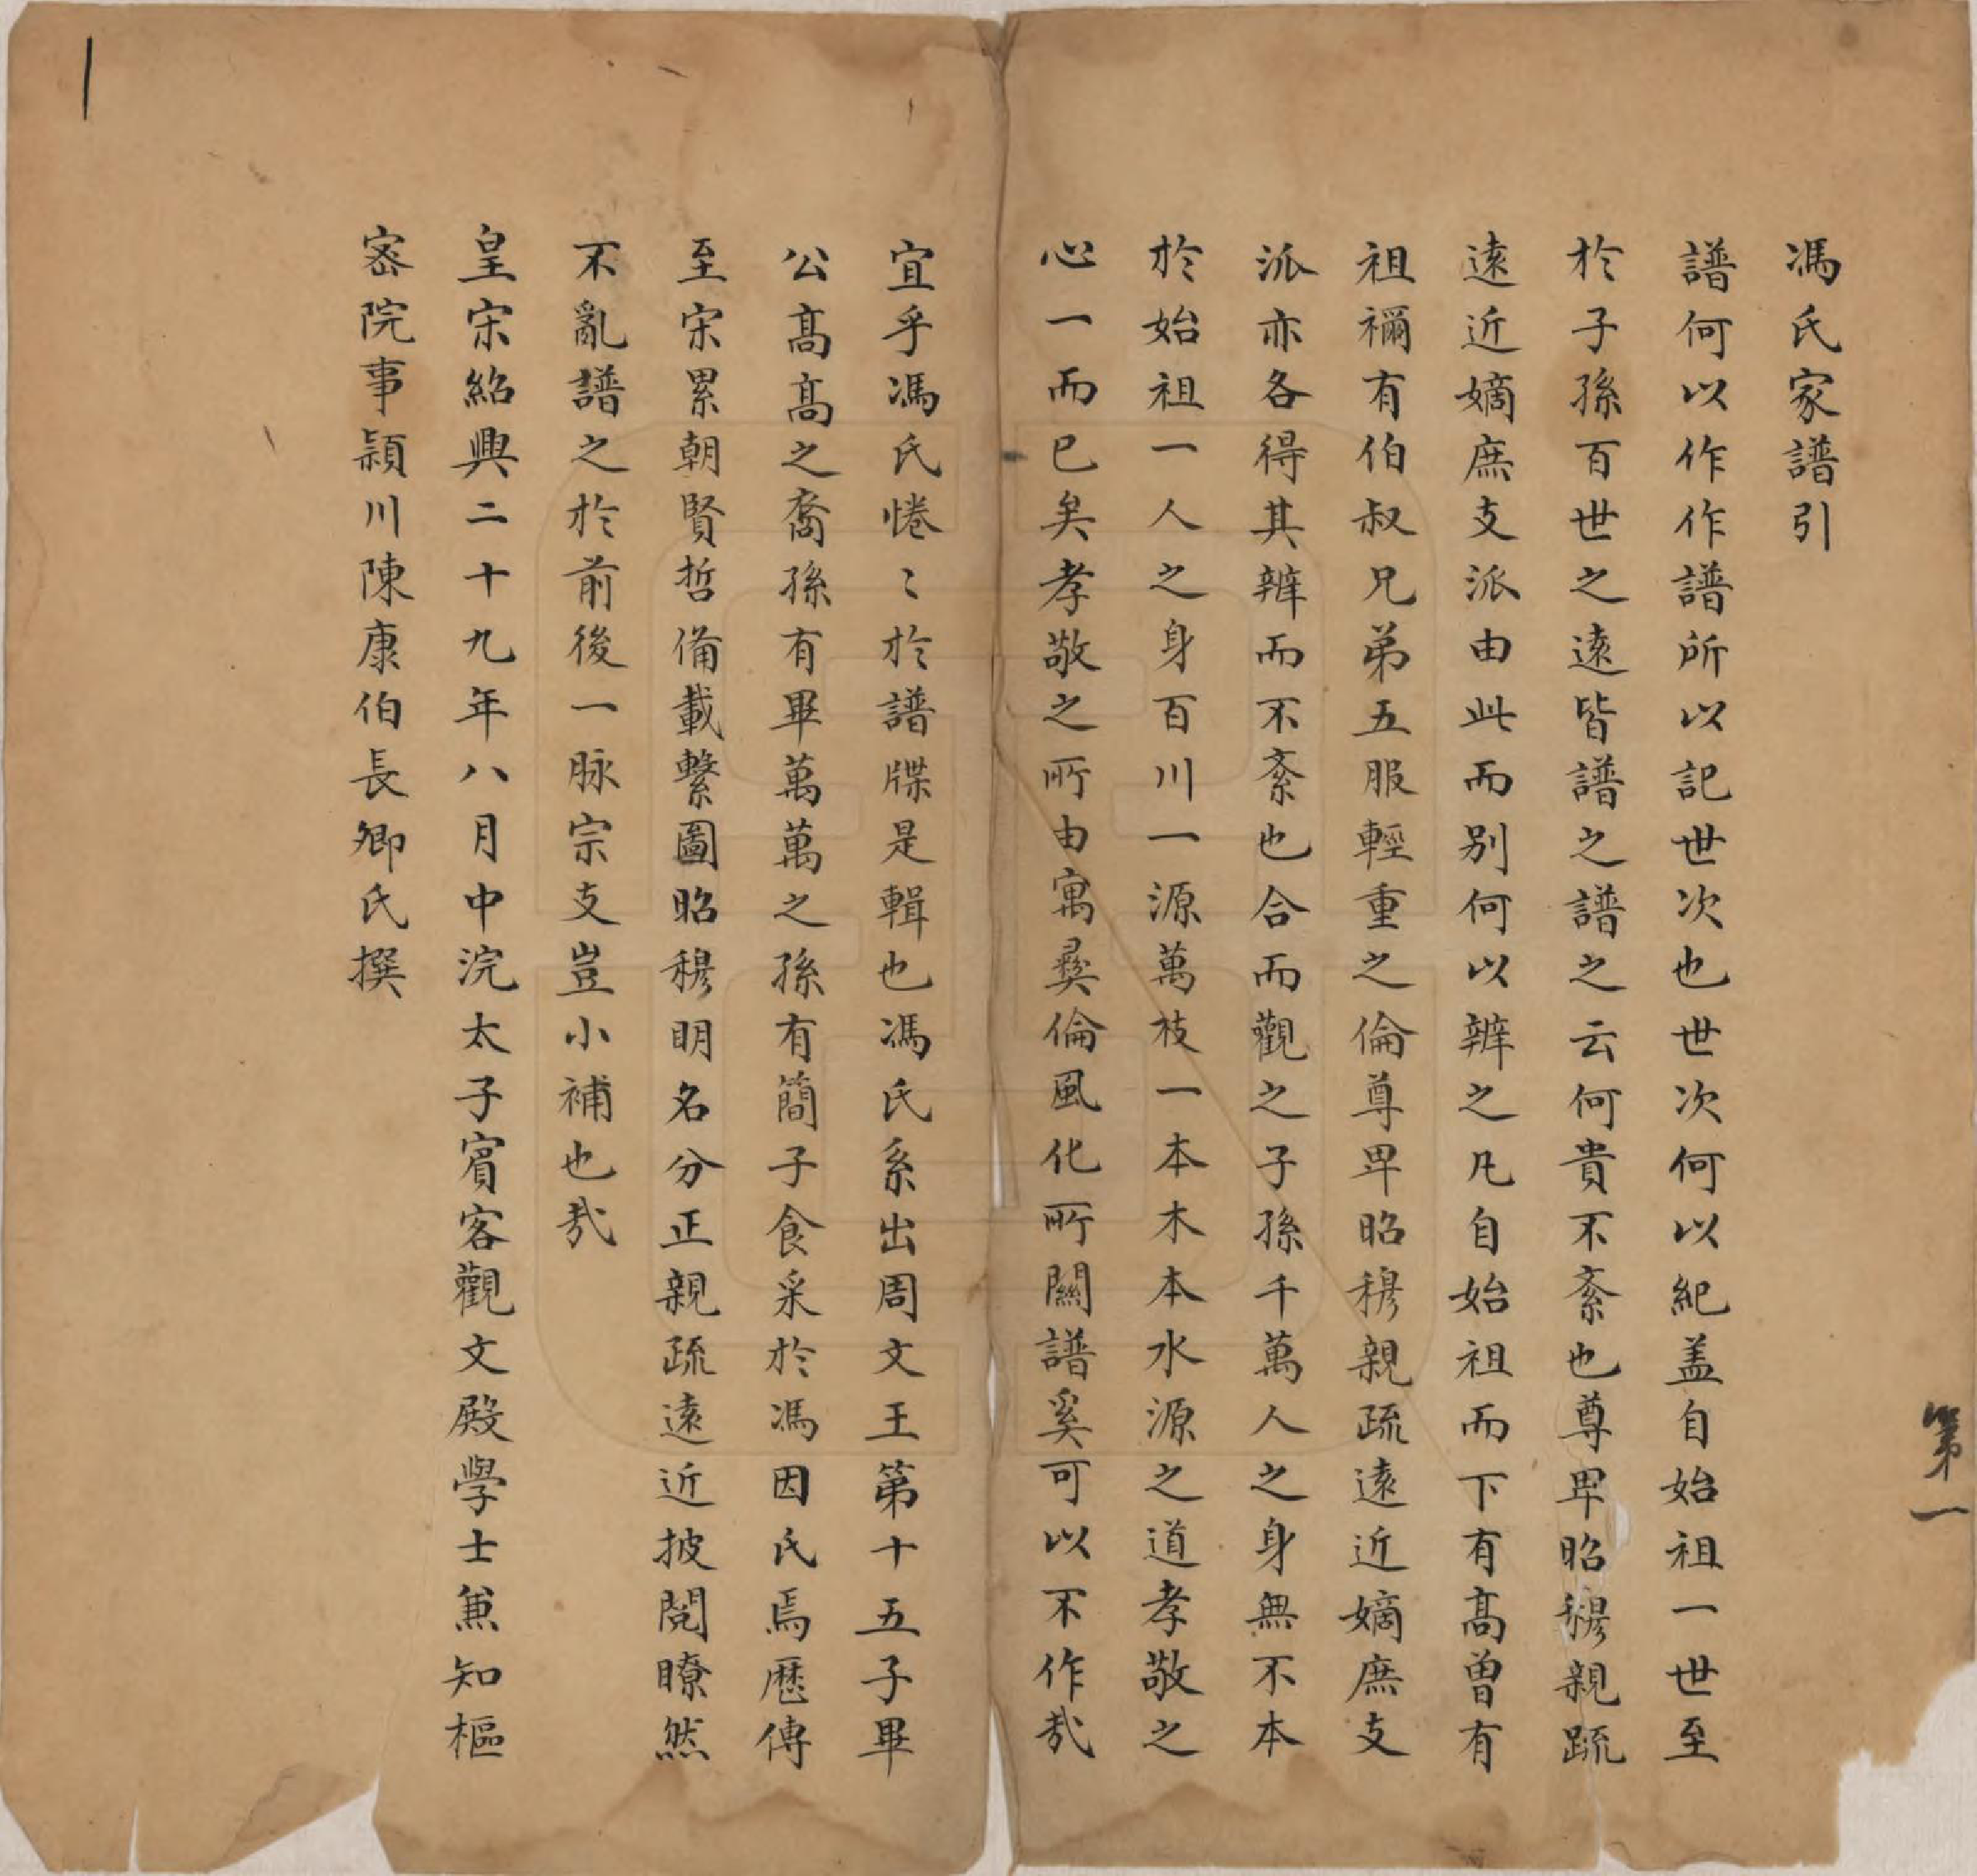 第一
馮氏家譜引
譜何以作作譜所以記世次也世次何以紀盖自始祖一世至
於子孫百世之遠皆譜之譜之云何貴不紊也尊卑昭穆親疏
遠近嫡庶支派由此而别何以辨之凡自始祖而下有髙曾有
祖禰有伯叔兄弟五服輕重之倫尊卑昭穆親疏遠近嫡庶支
派亦各得其辨而不紊也合而觀之子孫千萬人之身無不本
於始祖一人之身百川一源萬枝一本木本水源之道孝敬之
心一而已矣孝敬之所由寓彞倫風化所關譜奚可以不作㢤
宜乎馮氏惓〻於譜牒是輯也馮氏系出周文王第十五子畢
公髙髙之裔孫有畢萬萬之孫有簡子食采於馮因氏焉歷傳
至宋累朝賢哲備載繫圖昭穆明名分正親疏遠近披閱瞭然
不亂譜之於前後一脉宗支豈小補也㢤
皇宋紹興二十九年八月中浣太子賓客觀文殿學士兼知樞
密院事潁川陳康伯長卿氏撰